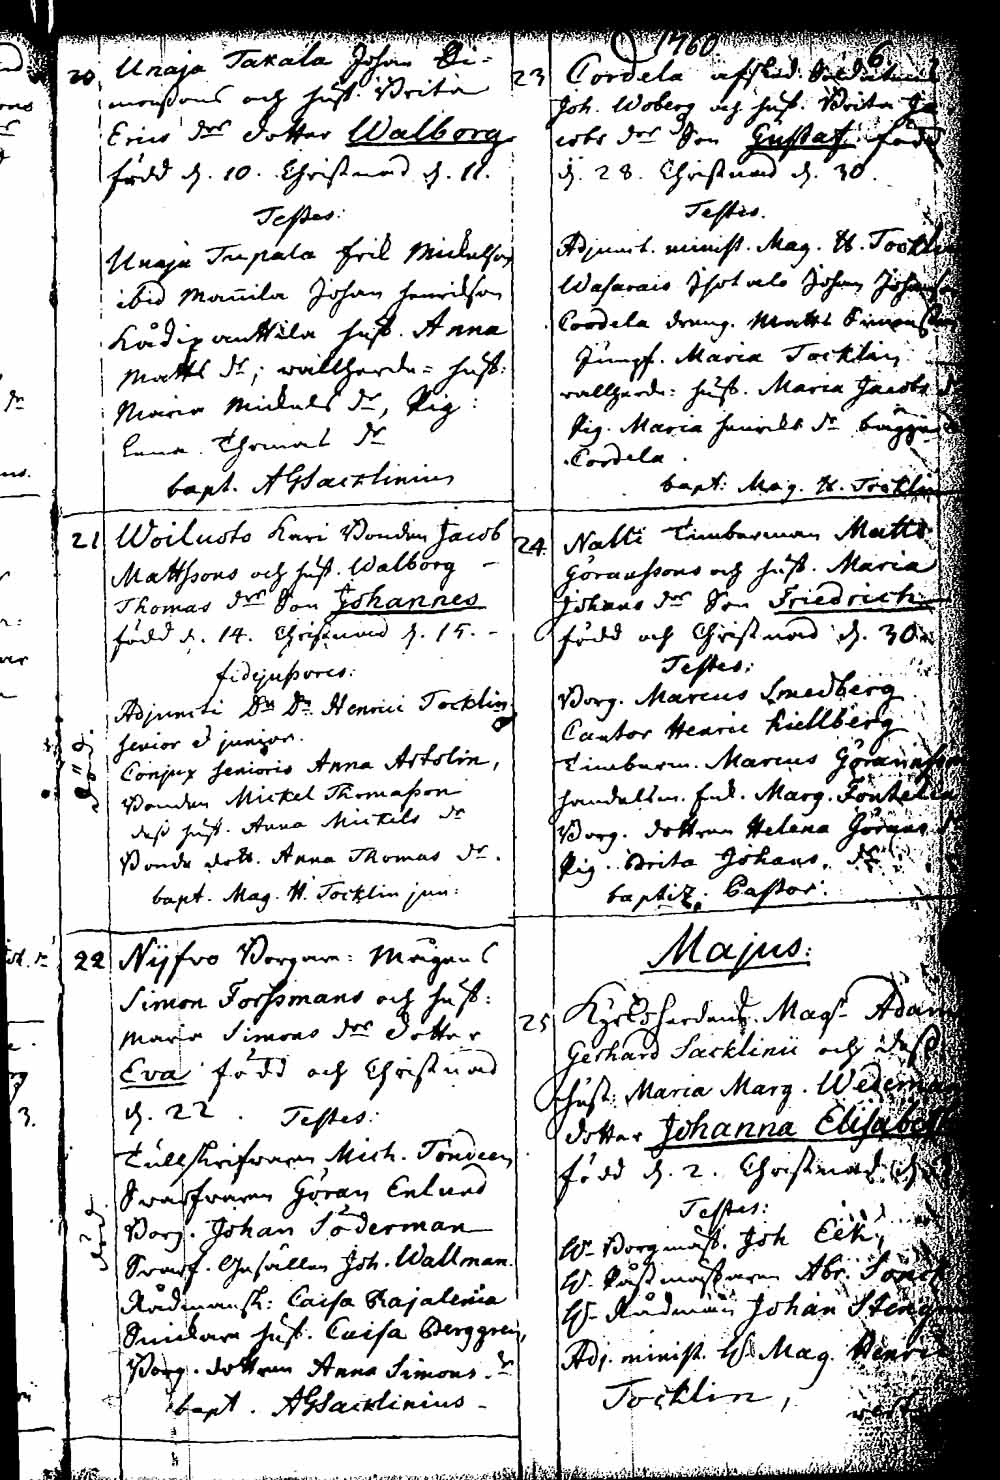 1760.
6
20 Unaja Takala Johan Si-
monssons och hust. Brita
Erics dr dotter Walborg
född d. 10. Christnad d. 11.
Testes:
Unaja Erik Mickelsson
ibid Mannila Johan Henriksson
hust. Anna
Matts dr, wallherde= hust:
Maria Mickels dr, Pig:
Thomas dr
bapt. AGSacklinius
21 Woiluoto Kari Bonden Jacob
Mattssons och hust. Walborg
Thomas dr Son Johannes
född d. 14. Christnad d. 15.
fidejussores:
Adjuncti Dn Dn Henric Tocklin
senior et junior.
Conjux senioris Anna Artolin,
Bonden Mickel Thomasson
dess hust. Anna Mickels dr
Bonde dott. Anna Thomas dr.
bapt. Mag. H. Tocklin jun:
död.
22 Nijfvo Borgare:
Simon Forssmans och hust:
Maria Simons dr dotter
Eva född och Christnad
d. 22. Testes:
Tullskrifvaren Mich. Tondeen
Swarfvaren Göran Enlund
Borg. Johan Söderman
Swarf. Gesällen Joh. Wallman.
Rådmansk: Caisa Rajalenia
hust. Caisa Berggren,
Borg. dottren Anna Simons dr
bapt. AGSacklinius
död.
23 Cordela afsked. Soldaten
Joh. Woberg och hust. Brita Ja
cobs dr Son Gustaf född
d. 28. Christnad d. 30.
Testes.
Adjunct. minist. Mag. H. Tocklin
Wasarais Isotalo Johan Johansson
Cordela dreng. Matts Simonsson
Jungf. Maria Tocklin
wallherde: hust. Maria Jacobs dr
Pig. Maria Henriks dr bägge
Cordela.
bapt: Mag. H. Tocklin
24. Nalli Timberman Matts
Göranssons och hust. Maria
Johans dr Son Friedrich
född och Christnad d. 30.
Testes:
Borg. Marcus Smedberg
Cantor Henric Kiellberg
Timberm. Marcus Göransson
handelsm. Marg. Fontelia
Borg. dottren Helena Görans dr
Pig. Brita Johans dr
baptiz. Pastor.
Majus:
25 Kyrckoherdens Magr Adam
Gerhard Sacklinii och dess
hust. Maria Marg. Wedeman
dotter Johanna Elisabeth
född d. 2. Christnad d.
Testes:
W. Borgmäst. Joh Eek,
W. Råstmästaren Abr. Sonck
W. Rådman Johan Stengrun
Adj. minist. W. Mag. Henric
Tocklin,